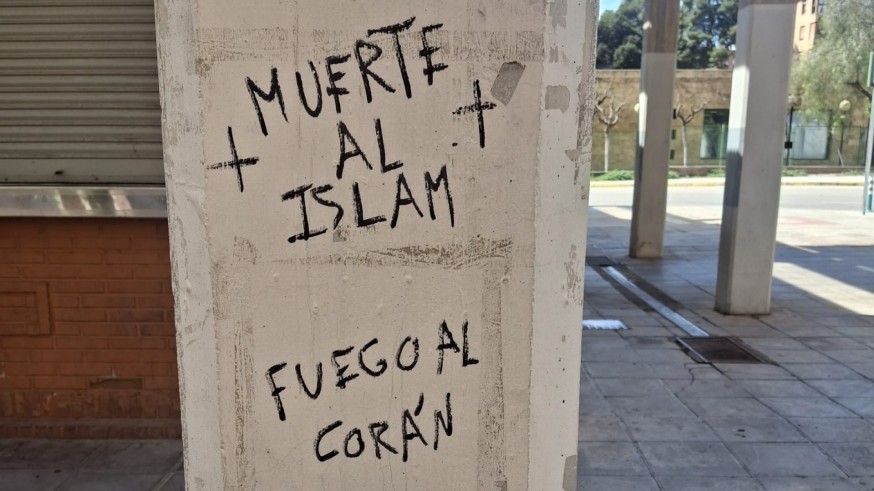 MUERTE
AL
ISLAM
FUEGO AL
CORÁN